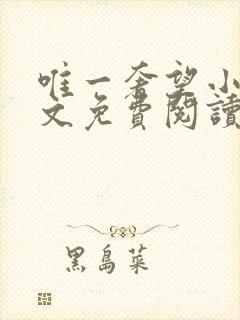 唯一奢望小
文免費閱讀
黑島菜